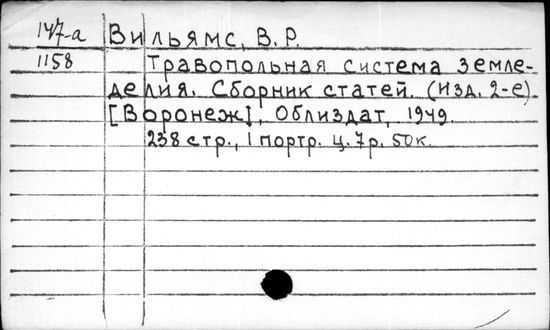 147-а Вильямс, В.Р.
1158 Травопольная система земле-
делия. Сборник статей. (Изд. 2-е).
[Воронеж], Облиздат, 1949.
238 стр., 1 портр. ц. 7р. 50к.